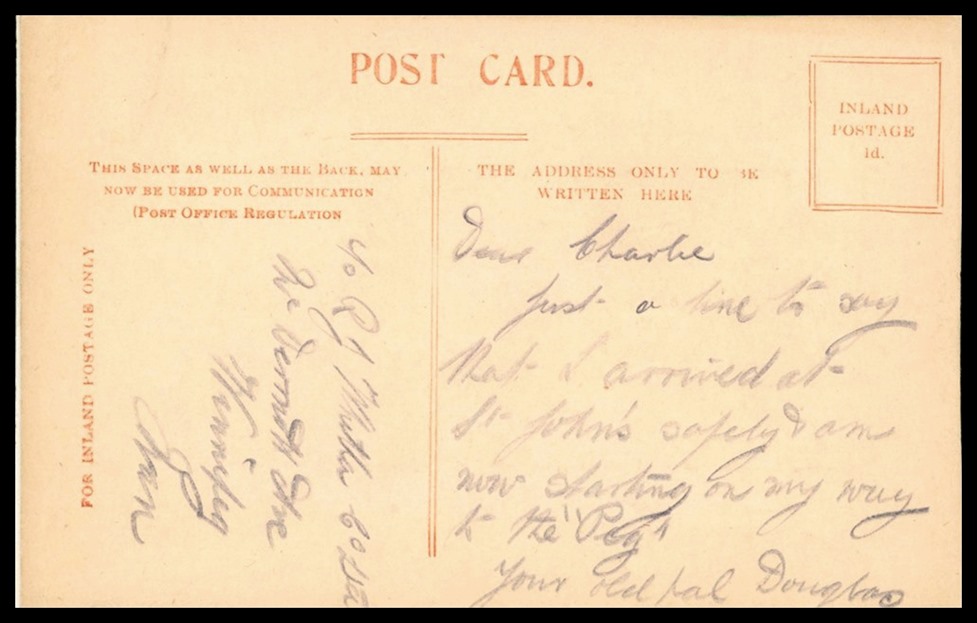 POST CARD.
INLAND
POSTAGE
1d.
THIS SPACE AS WELL AS THE BACK, MAY
NOW BE USED FOR COMMUNICATION
(POST OFFICE REGULATION
THE ADDRESS ONLY TO BE
WRITTEN HERE
FOR INLAND POSTAGE ONLY
Dear Charlie
just a line to say
that I arrived at
St John's safely & am
now starting on my way
to the "Peg"
Your old pal Douglas
c/o R J
McDermott Ave
Winnipeg
Man